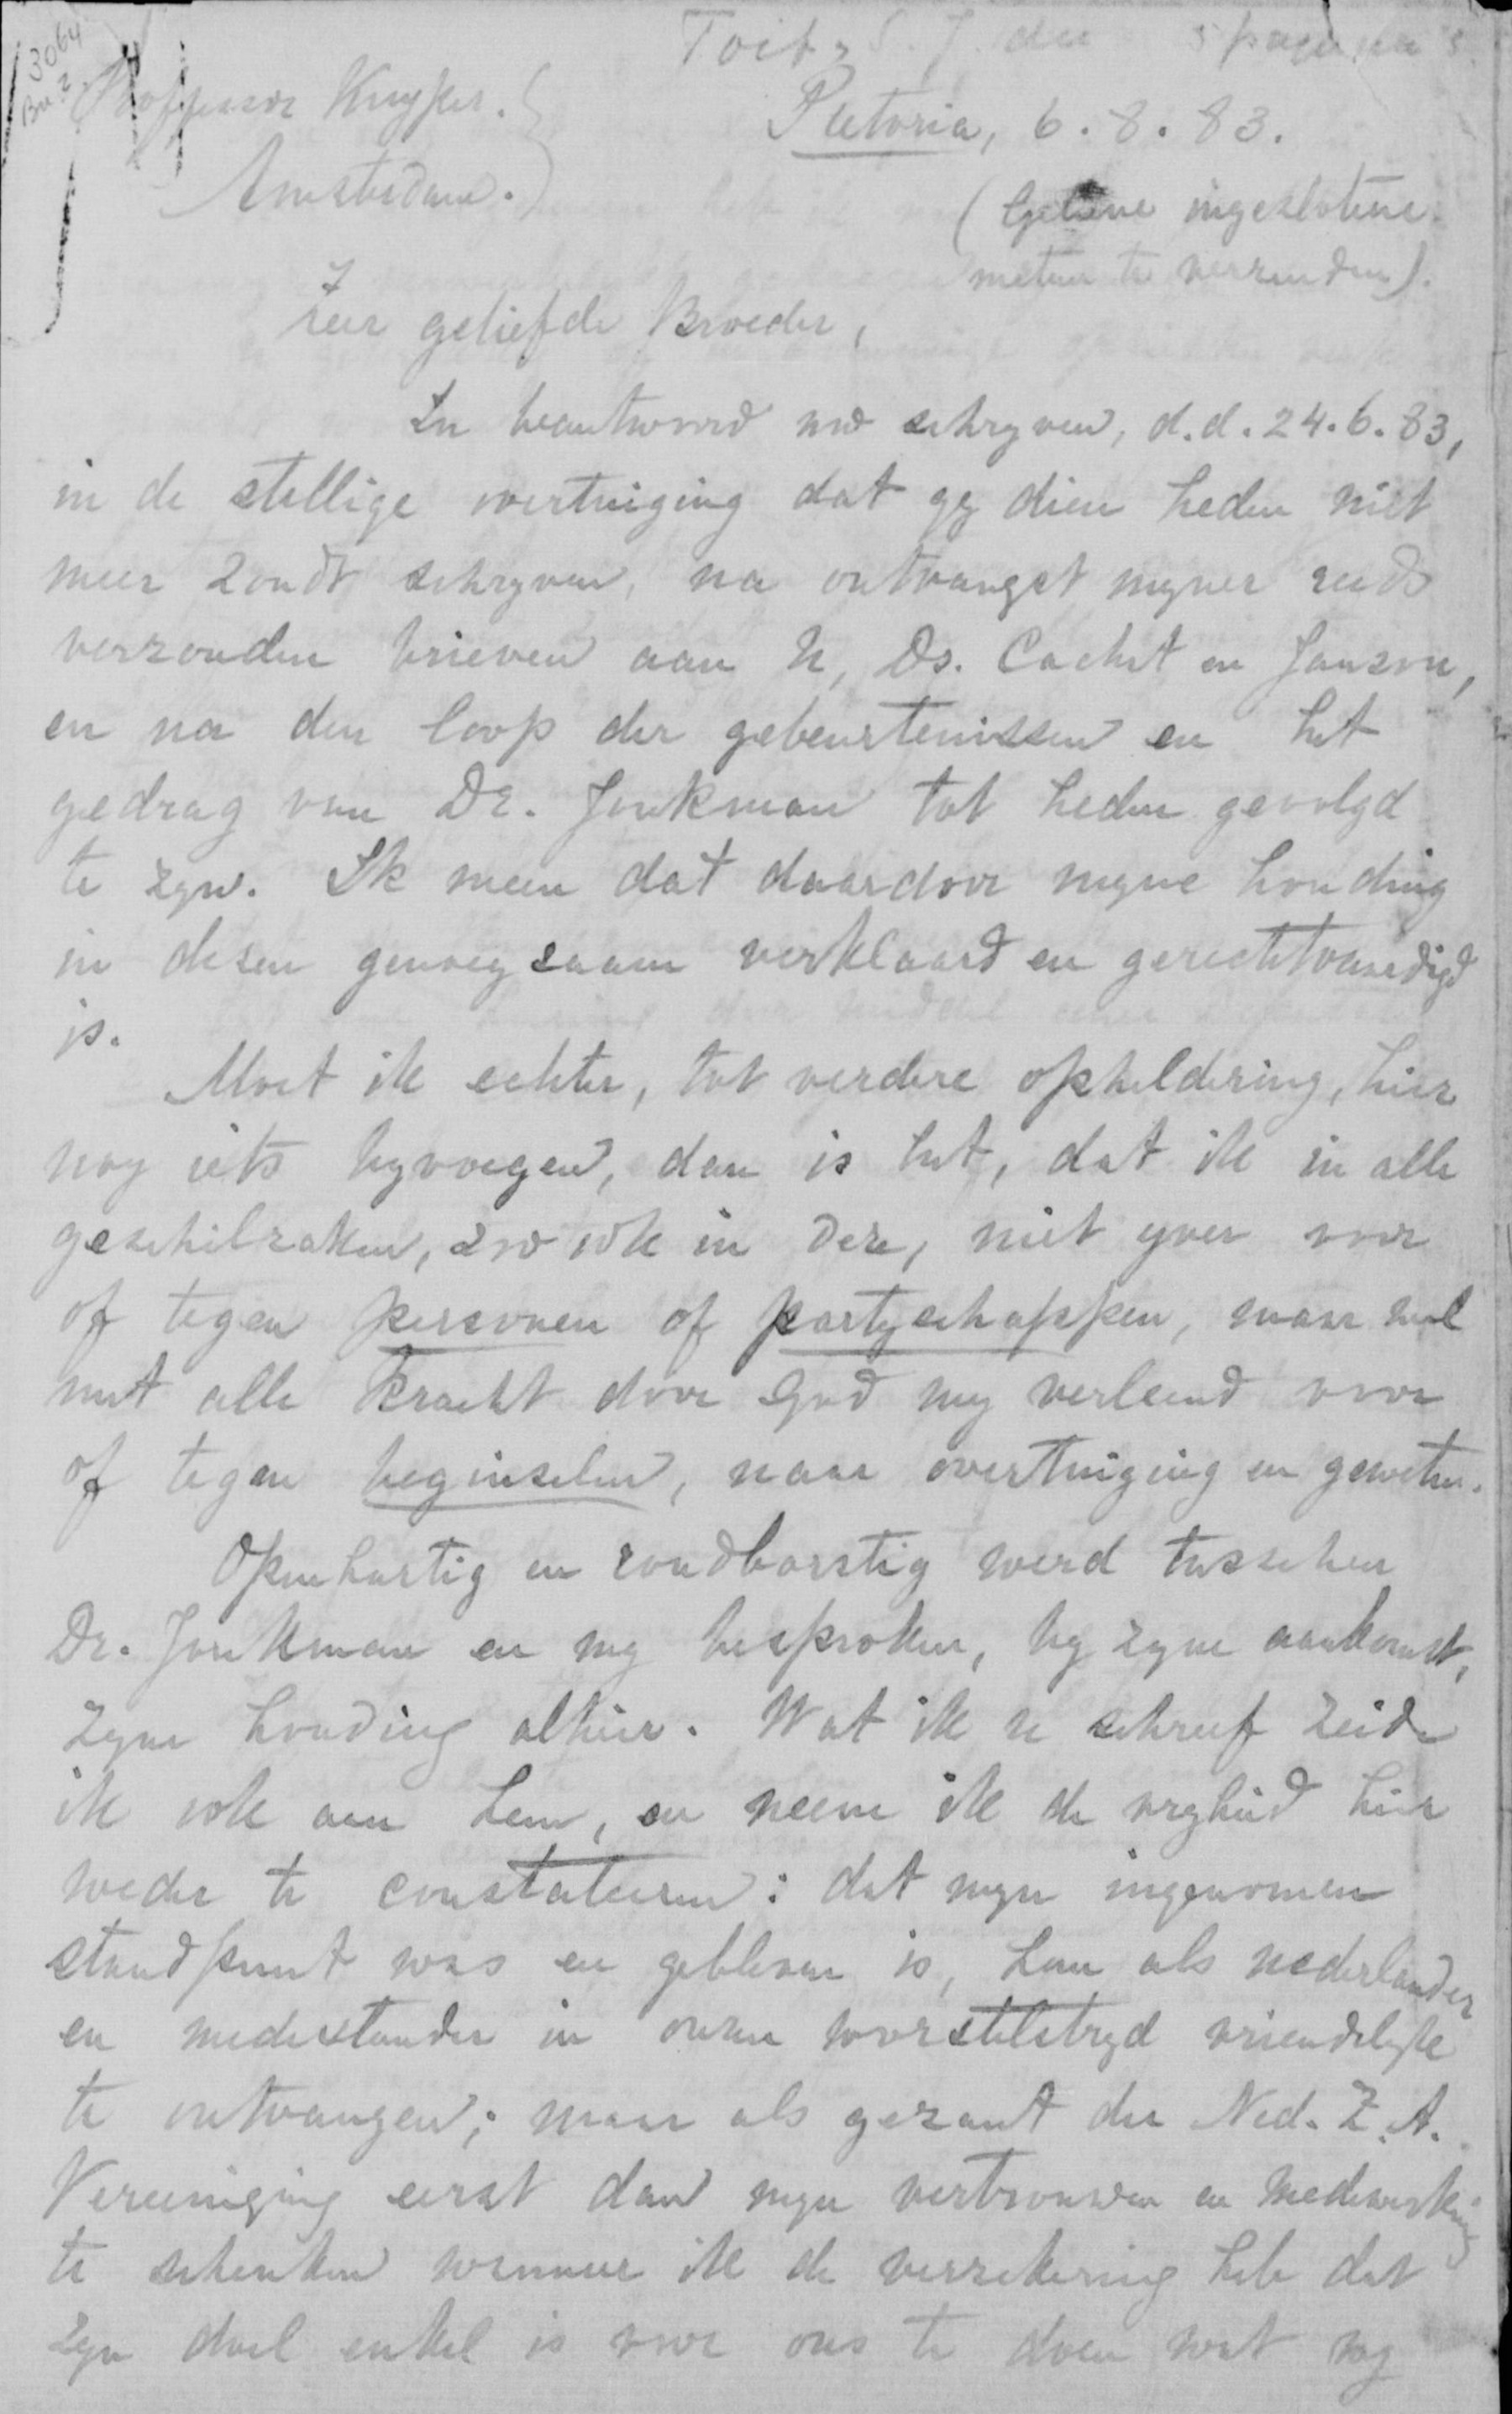 Toit, S. J. du 5 pagina's
3064
Br. 2
Professor Kuyper.
Amsterdam.
Pretoria, 6.8.83.
(Gelieve ingeslotene
meteen te verzenden).
Zeer geliefde Broeder,
Ik beantwoord uw schryven, d.d. 24.6.83,
in de stellige overtuiging dat gy dien heden niet
meer zoudt schryven, na ontvangst myner reeds
verzonden brieven aan U, Ds. Cachet en Janson,
en na den loop der gebeurtenissen en het
gedrag van Dr. Jonkman tot heden gevolgd
te zyn. Ik meen dat daardoor myne houding
in dezen genoegzaam verklaard en gerechtvaardigd
is.
Moet ik echter, tot verdere opheldering, hier
nog iets byvoegen, dan is het, dat ik in alle
geschilzaken, zoo ook in deze, niet yver voor
of tegen personen of partyschappen, maar wel
met alle kracht door God my verleend voor
of tegen beginselen, naar overtuiging en geweten.
Openhartig en rondborstig werd tusschen
Dr. Jonkman en my besproken, by zyne aankomst,
zyne houding alhier. Wat ik u schreef zeide
ik ook aan hem, en neem ik de vryheid hier
weder te constateeren: dat myn ingenomen
standpunt was en gebleven is, hem als nederlander
en medestander in onzen worstelstryd vriendelyk
te ontvangen; maar als gezant der Ned. Z. A.
Vereeniging eerst dan myn vertrouwen en medewerking
te schenken wanneer ik de verzekering heb dat
zyn doel enkel is voor ons te doen wat wy